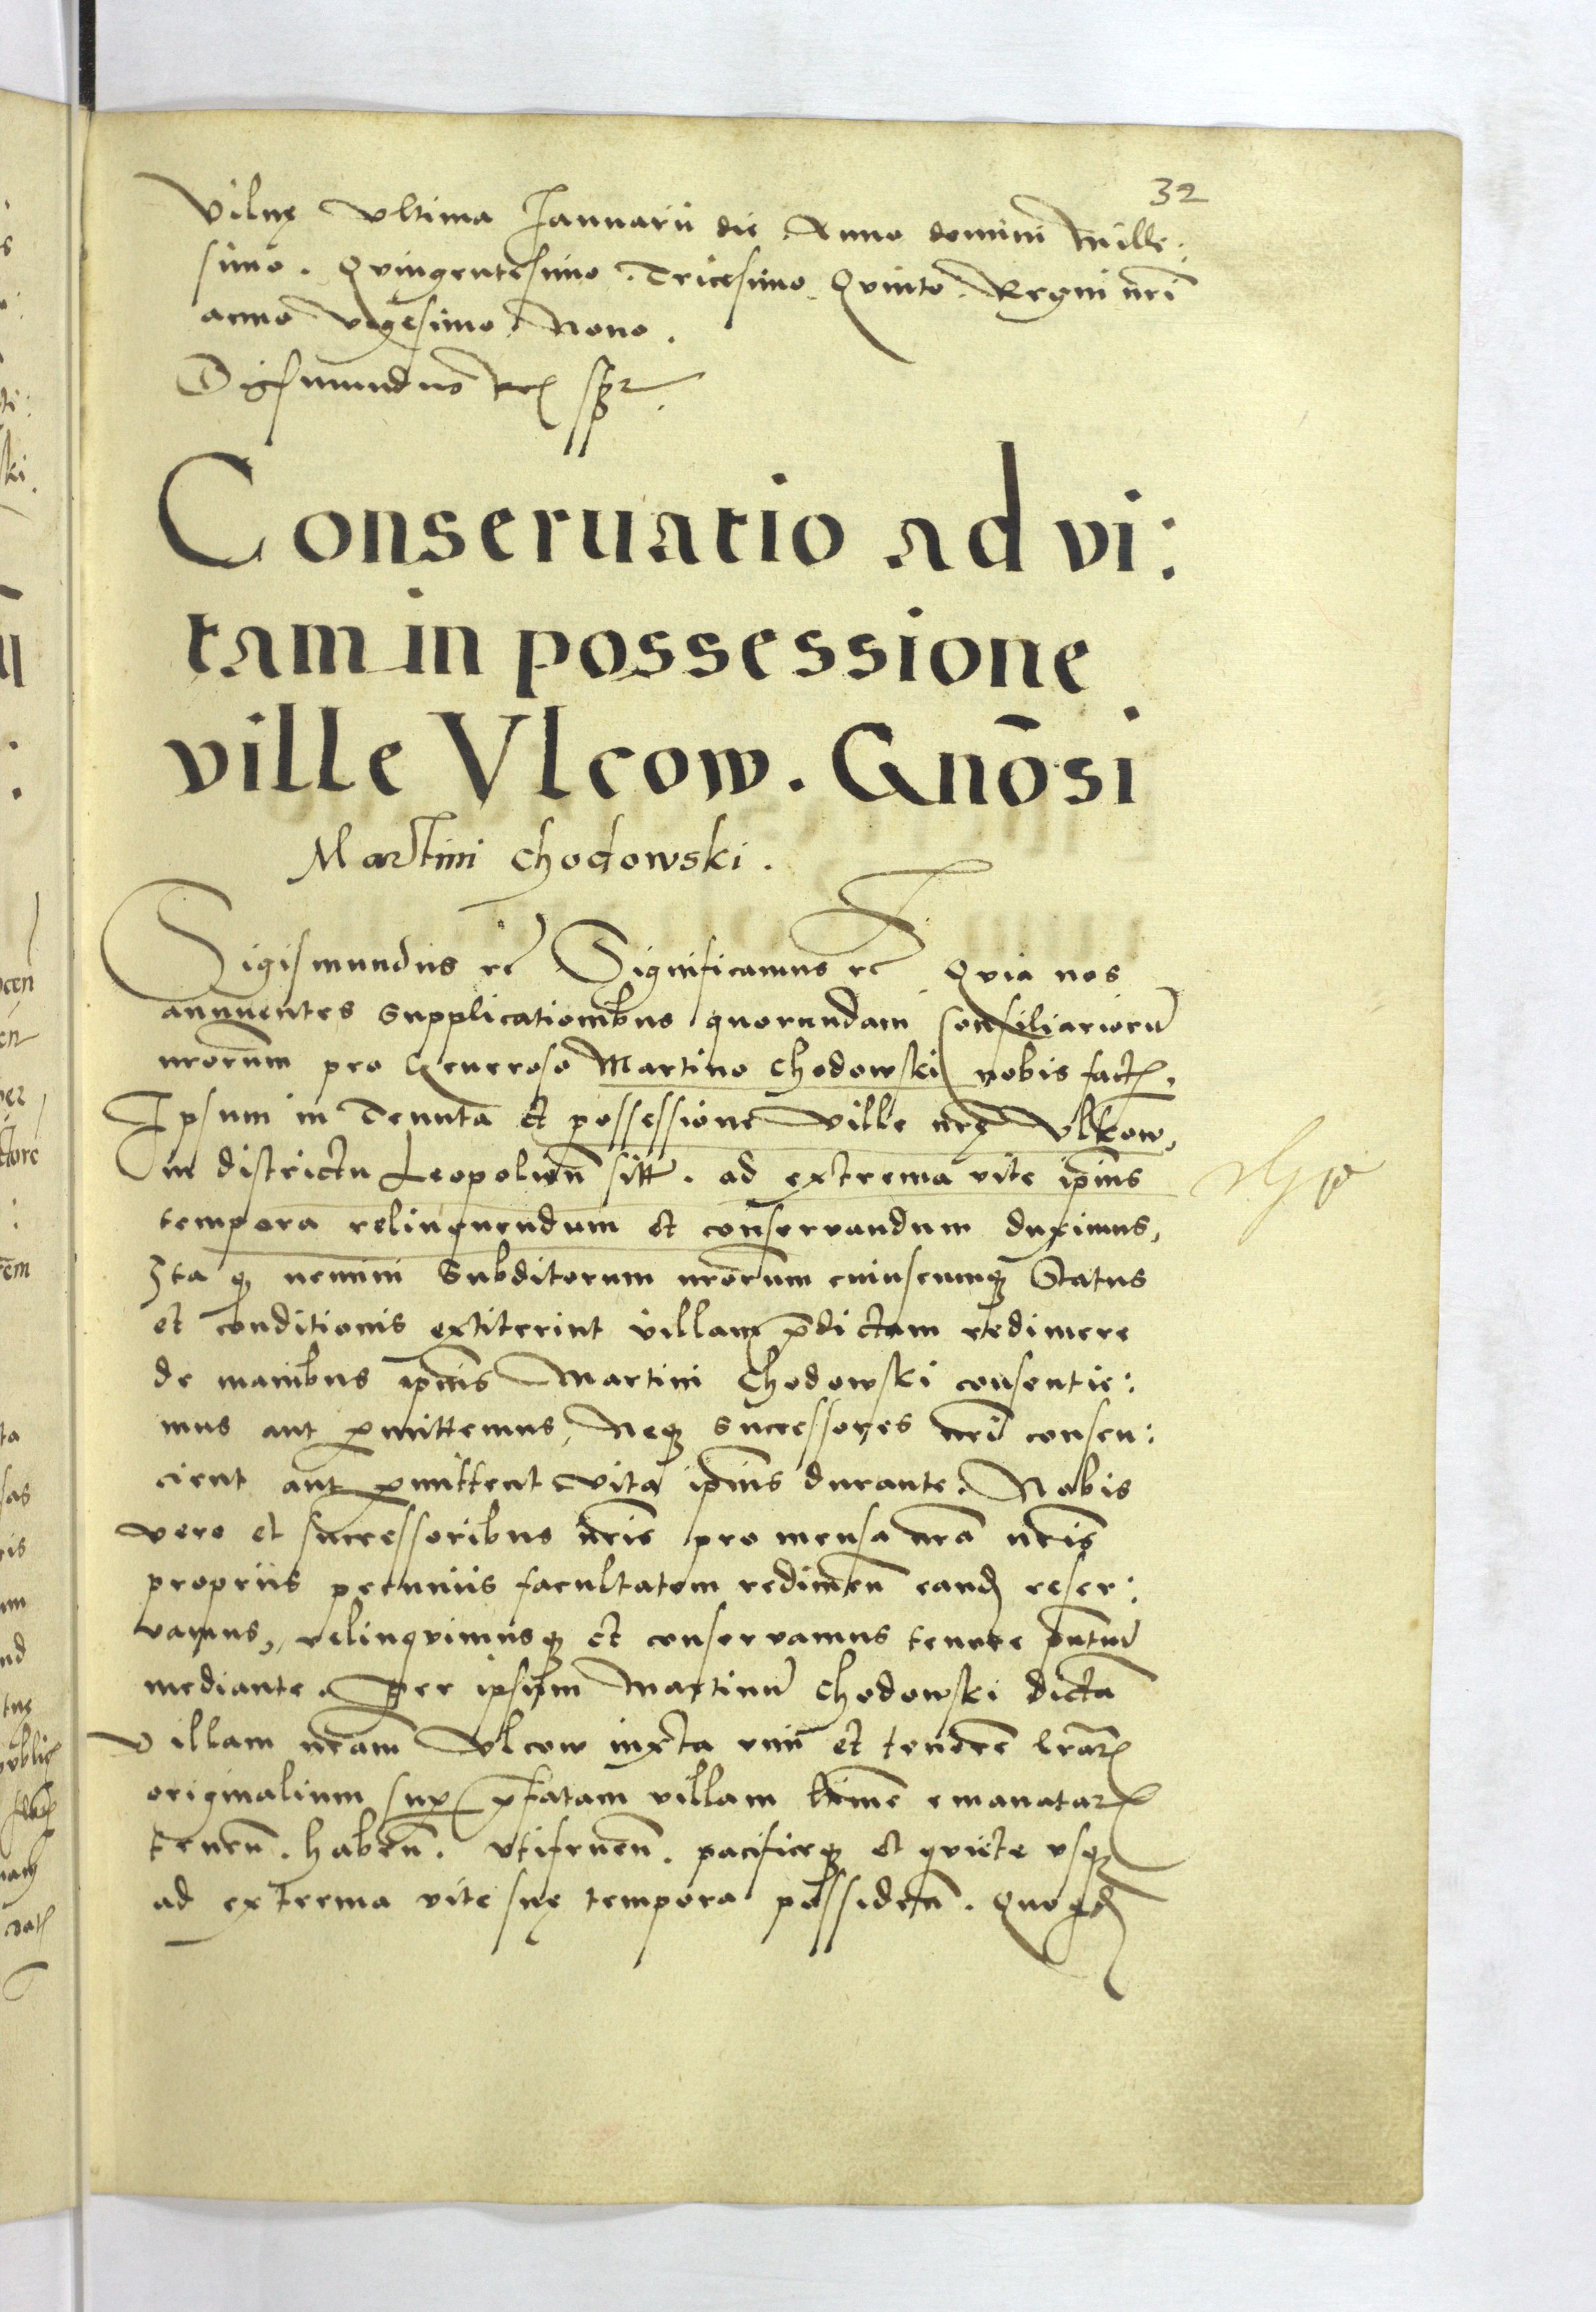 32
Vilnę Ultima Januarii die Anno domini Mille:
simo. Quingentesimo. Tricesimo Quinto. Regni nrī
anno vigesimo Nono.
Sigismundus Rex sptr.
Conseruatio ad vi:
tam in possessione
ville Vlcow. Gnōsi
Martini chodowski.
Sigismundus etc Significamus etc Quia nos
annuentes supplicationibus quorundam Consiliariorū
nrorum pro Generoso Martino Chodowski nobis fact,
Ipsum in Tenuta et possessione ville nrę Vlkow,
in districtu Leopolien̄ sitt. ad extrema vite ipius
tempora relinquendum et conservandum duximus,
Ita q nemini Subditorum nrorum cuiuscunq Status
et conditionis extiterint villam p̄dictam redimere
de manibus ipius Martini Chodowski consentie:
mus aut pmittemus, Neq successores nrī consen:
cient aut pmittent vita ipius durante. Nobis
vero et successoribus nrīs pro mensa nrā nrīs
propriis pecuniis facultatem redimen̄ eand reser:
vamus, relinquimusq et conservamus tenore pn̄tium
mediante. Per ipsum Martinū Chodowski dictā
villam nrām Vlcow iuxta vim et tenorē lrār
originalium sup p̄fatam villam emanatar
tenen̄. haben̄. vtifruen̄. pacificeq et quiete vsq
ad extrema vite suę tempora possiden̄. Quoqd